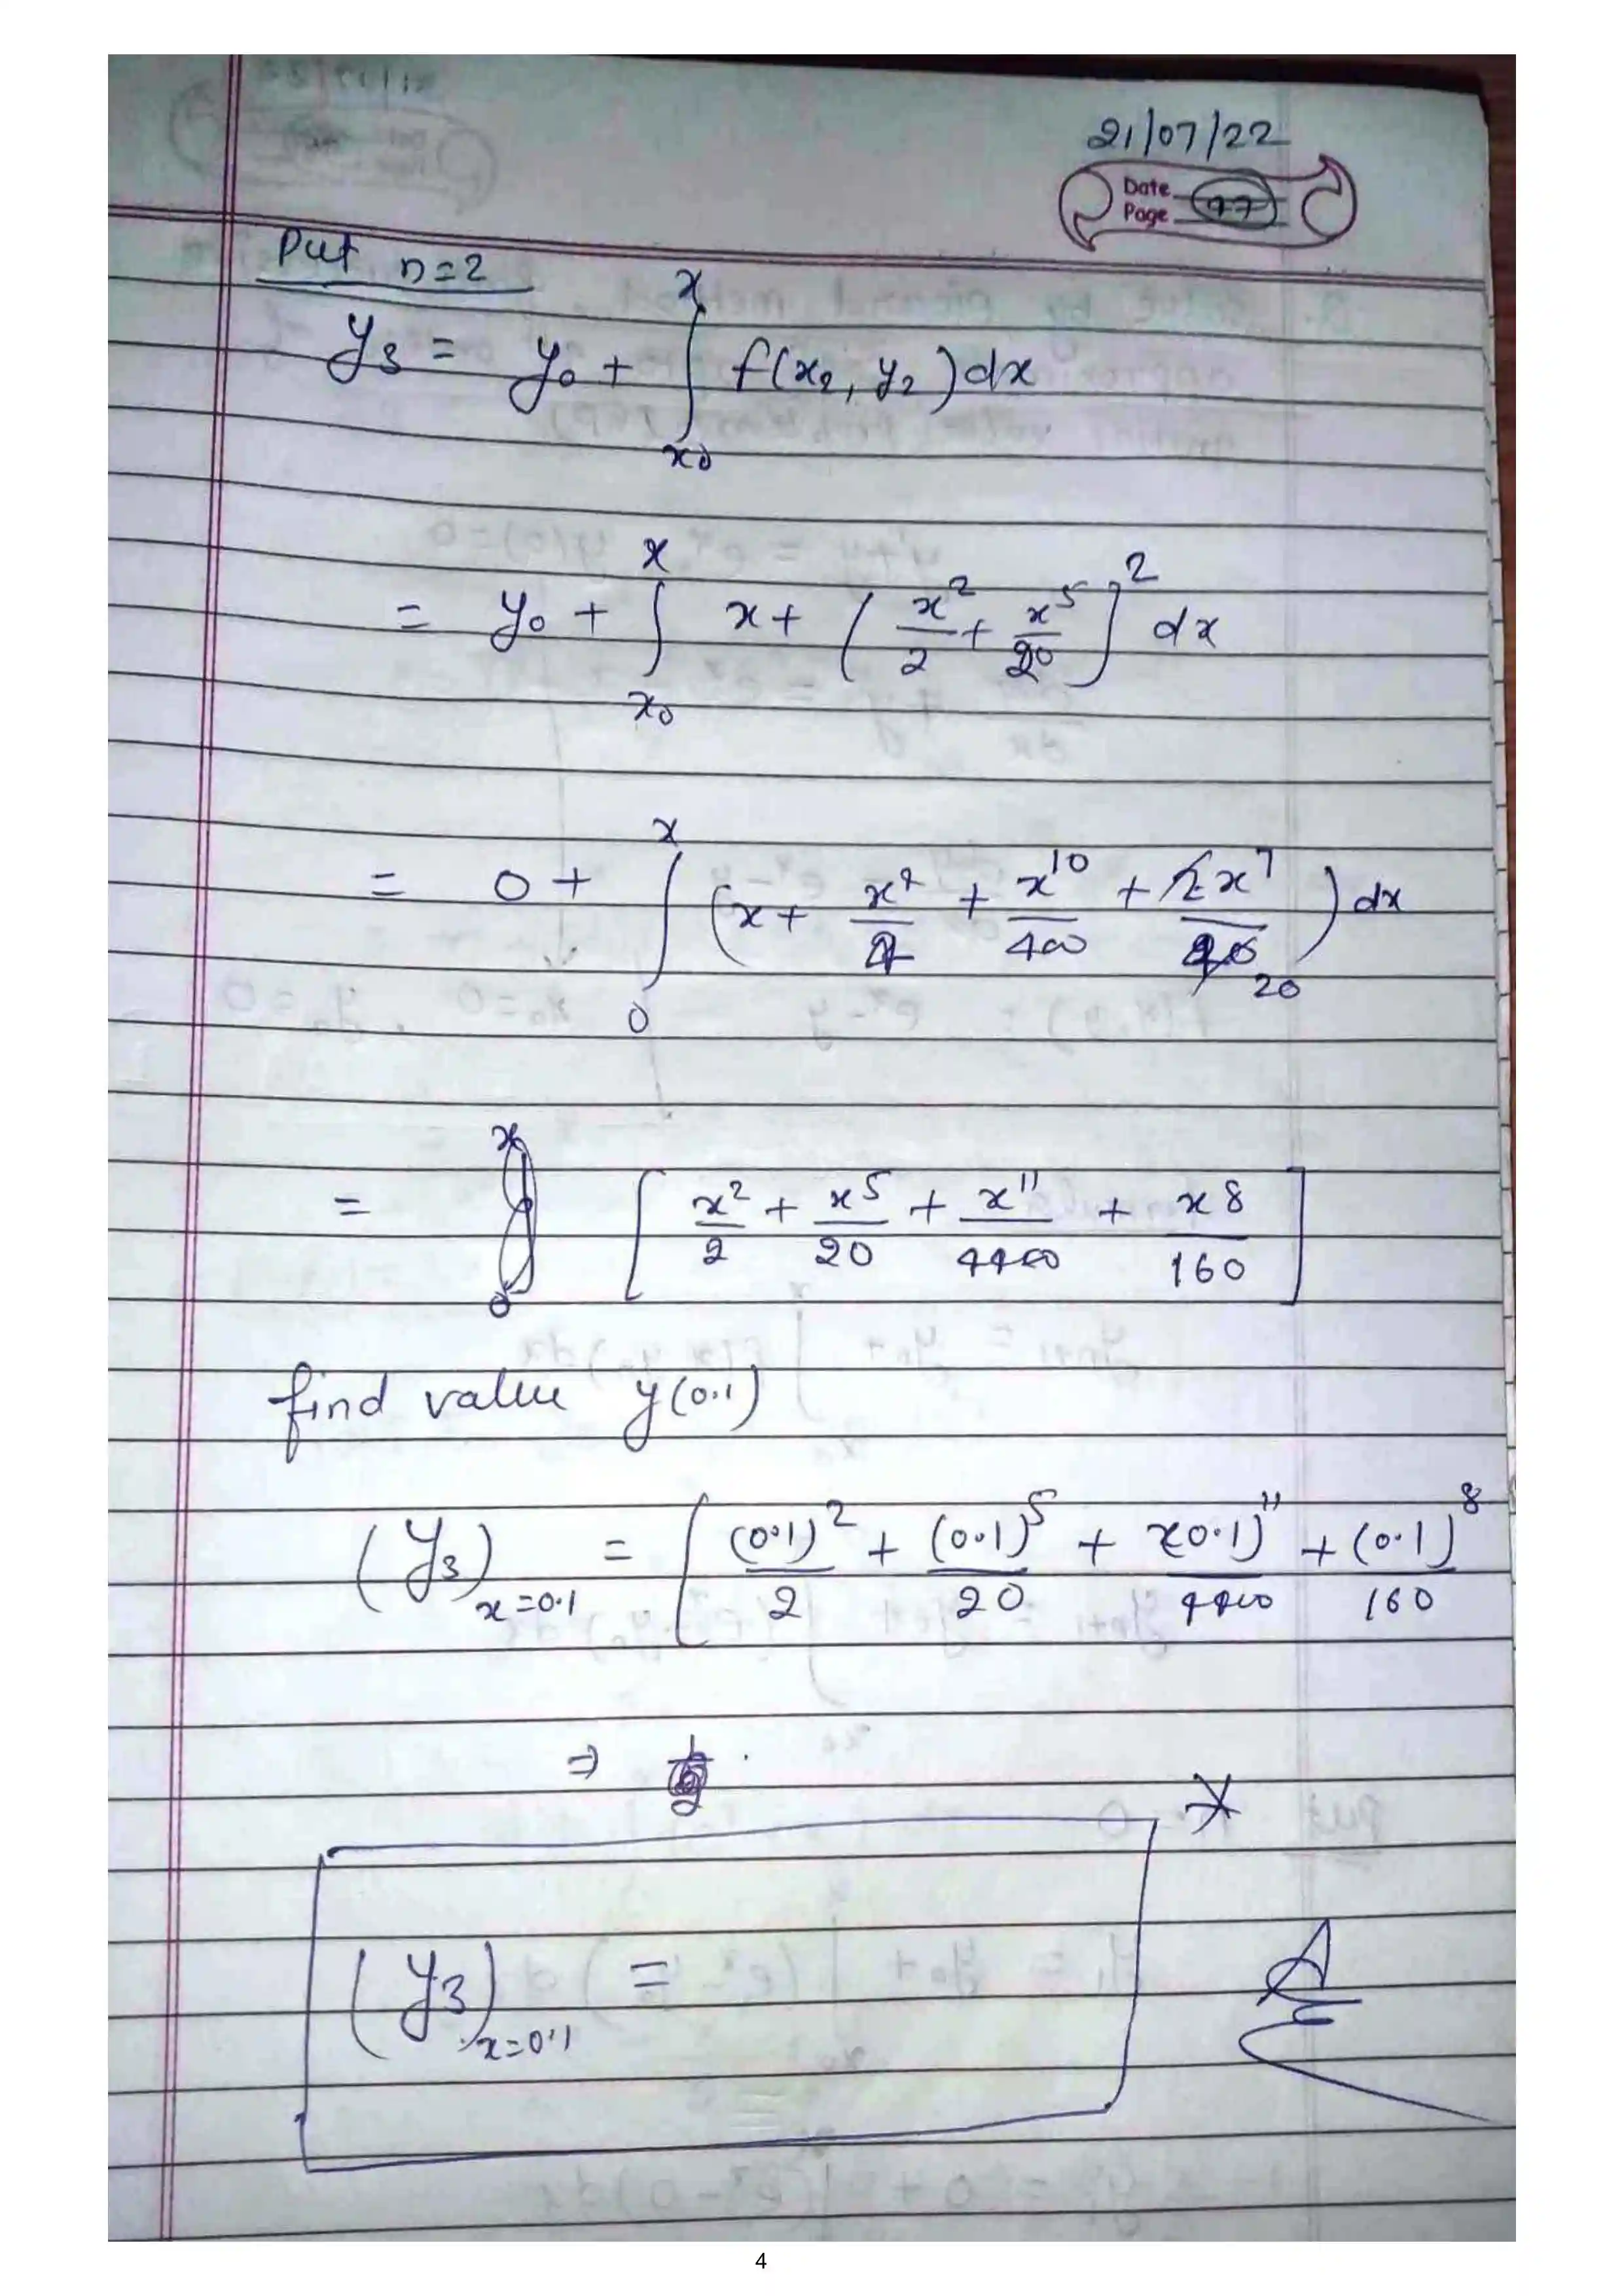 21/07/22
Date
Page 97
Put n=2
y₃ = y₀ + ∫ₓ₀ˣ f(x₂, y₂)dx
= y₀ + ∫ₓ₀ˣ x + (x²/2 + x⁵/20]² dx
= 0 + ∫₀ˣ (x + x⁴/4 + x¹⁰/400 + 2x⁷/40 20) dx
= [x²/2 + x⁵/20 + x¹¹/4400 + x8/160]
find value y(0.1)
(y₃)ₓ₌₀.₁ = [(0.1)²/2 + (0.1)⁵/20 + (0.1)¹¹/4400 + (0.1)⁸/160
⇒
(y₃)ₓ₌₀.₁ =
4